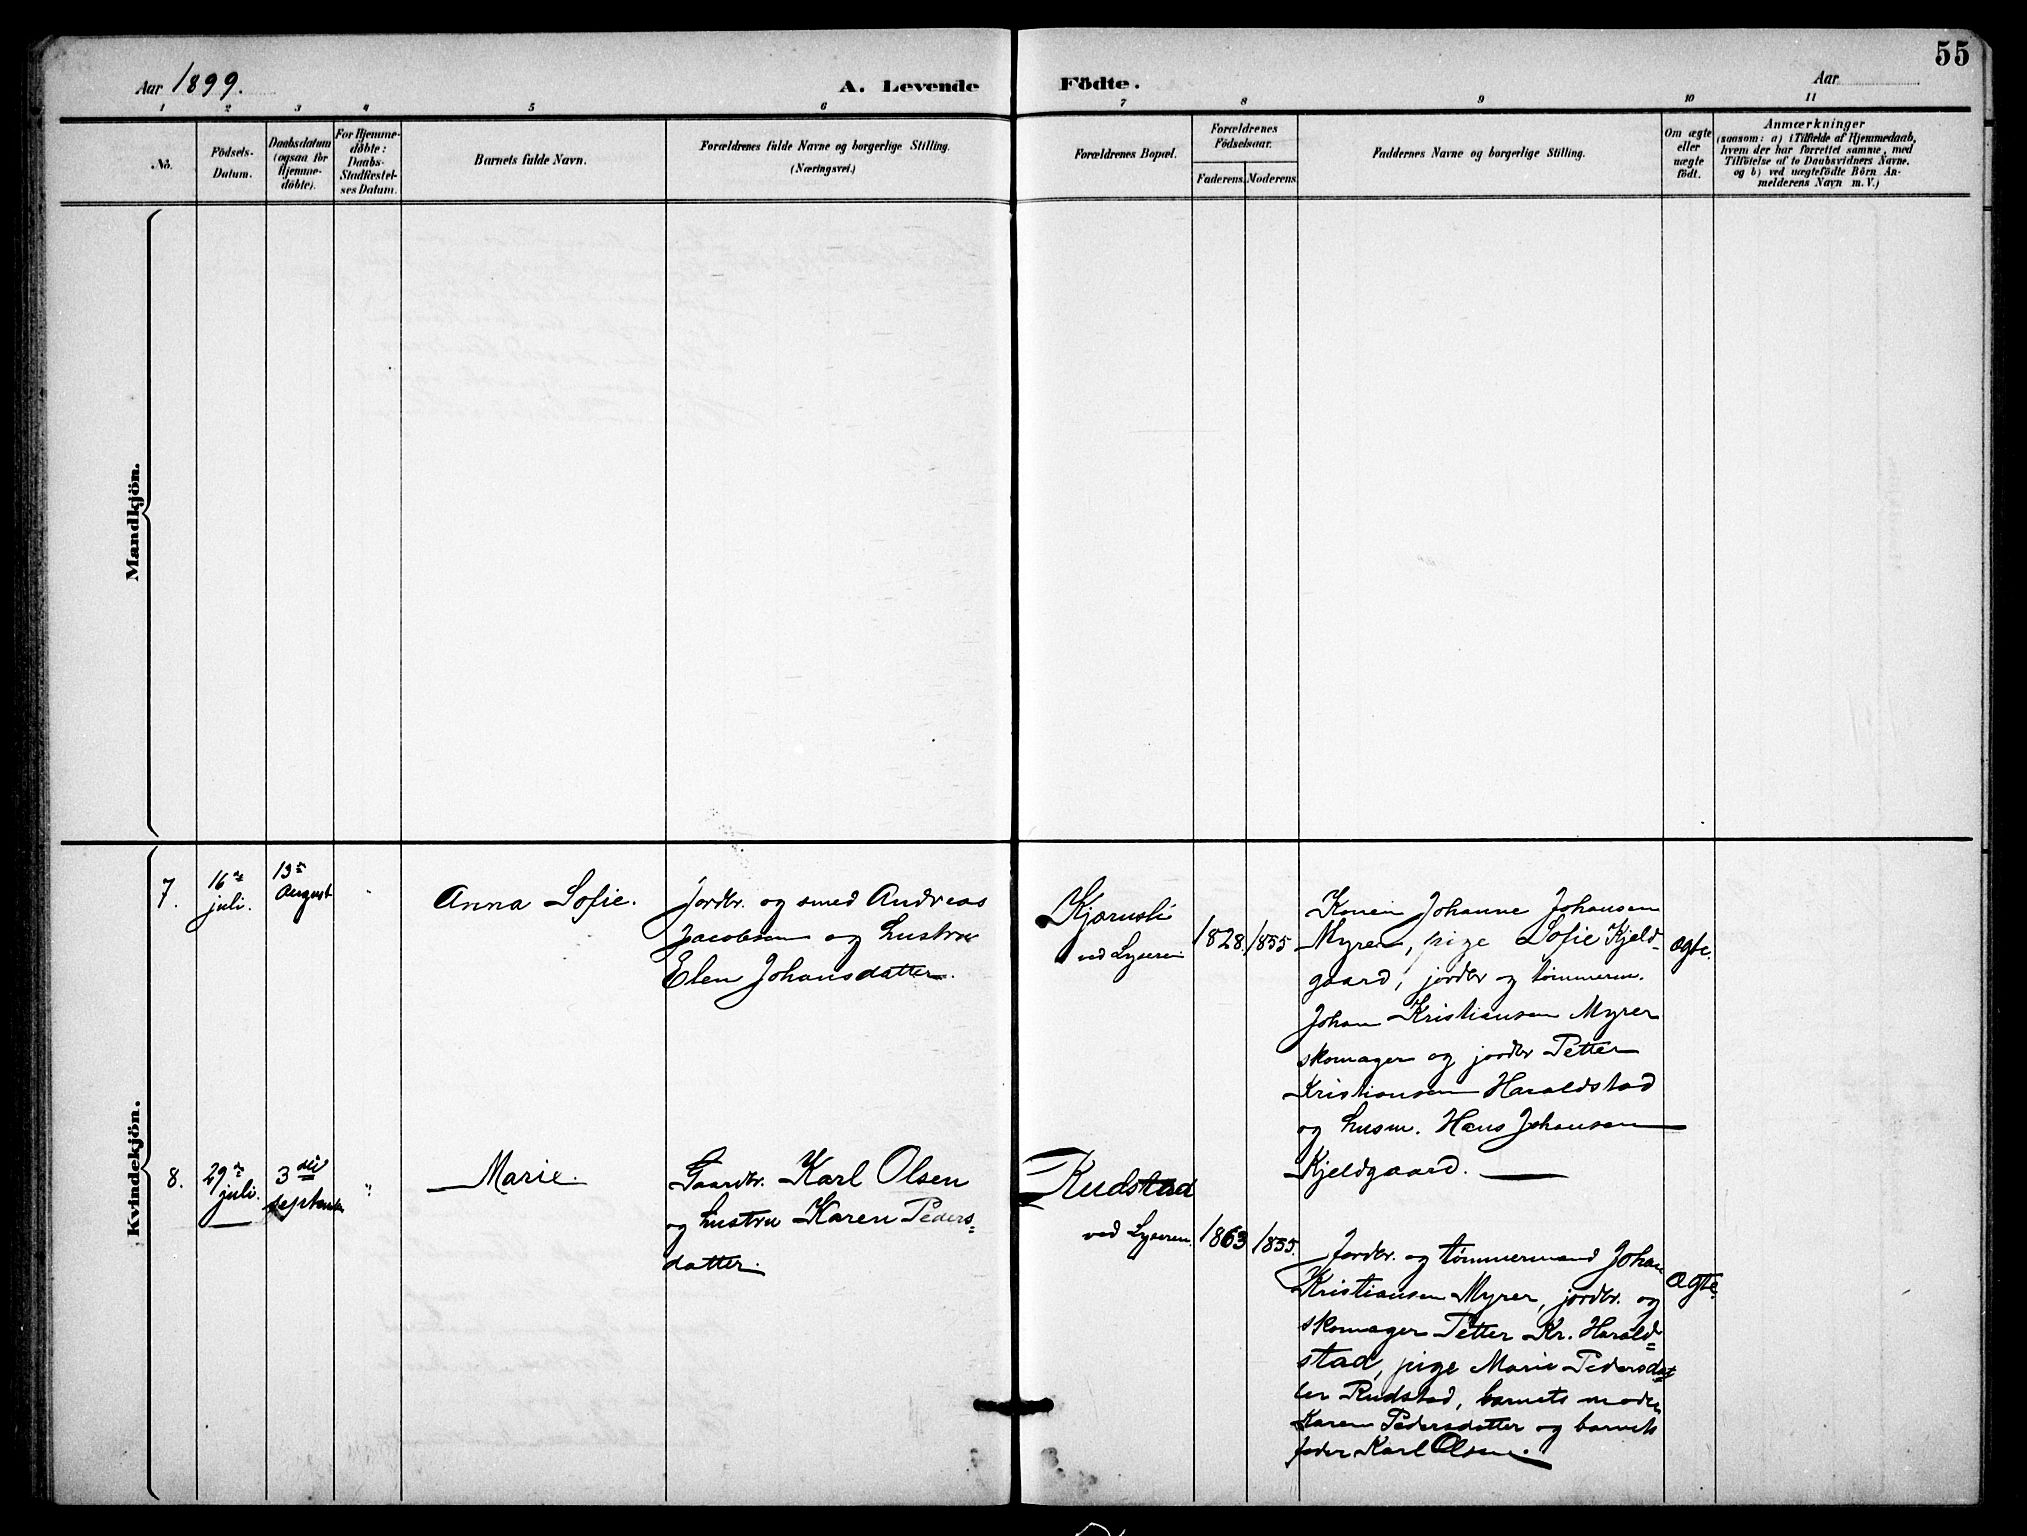 55
Aar 1899.
A. Levende Födte.
Aar
1 2 3 4 5 6 7 8 9 10 11
No.
Födsels-
Datum.
Daabsdatum
(ogsaa for
Hjemme-
döbte).
For Hjemme-
döbte:
Daabs-
Stadfæstel-
ses Datum.
Barnets fulde Navn.
Forældrenes fulde Navne og borgerlige Stilling.
(Næringsvei.)
Forældrenes Bopæl.
Forældrenes
Födselsaar.
Faderens. Moderens.
Faddernes Navne og borgerlige Stilling.
Om ægte
eller
uægte
födt.
Anmærkninger
(saasom: a) i Tilfælde af Hjemmedaab,
hvem der har forrettet samme, med
Tilföielse af to Daabsvidners Navne,
og b) ved uægtefödte Börn An-
melderens Navn m. V.)
Mandkjön.
Kvindekjön.
7.
16de
juli.
13de
August
"
Anna Sofie.
Jordbr. og smed Andreas
Jacobsen og hustru
Elen Johansdatter.
Kjærnsli
ved Lyseren
1828. 1855
Konen Johanne Johansen
Myrer, pige Sofie Kjeld-
gaard, jordbr og tømmerm.
Johan Kristiansen Myrer
skomager og jordbr Petter
Kristiansen Haraldstad
og husm. Hans Johansen
Kjeldgaard.
ægte.
8.
29de
juli.
3die
september
"
Marie.
Gaardbr. Karl Olsen
og hustru Karen Peders=
datter.
Rudstad
ved Lyseren.
1863 1855.
Jordbr. og tømmermand Johan
Kristiansen Myrer, jordbr. og
skomager Petter Kr. Harald=
stad, pige Marie Pedersdat
ter Rudstad, barnets moder
Karen Pedersdatter og barnets
fader Karl Olsen.
ægte.